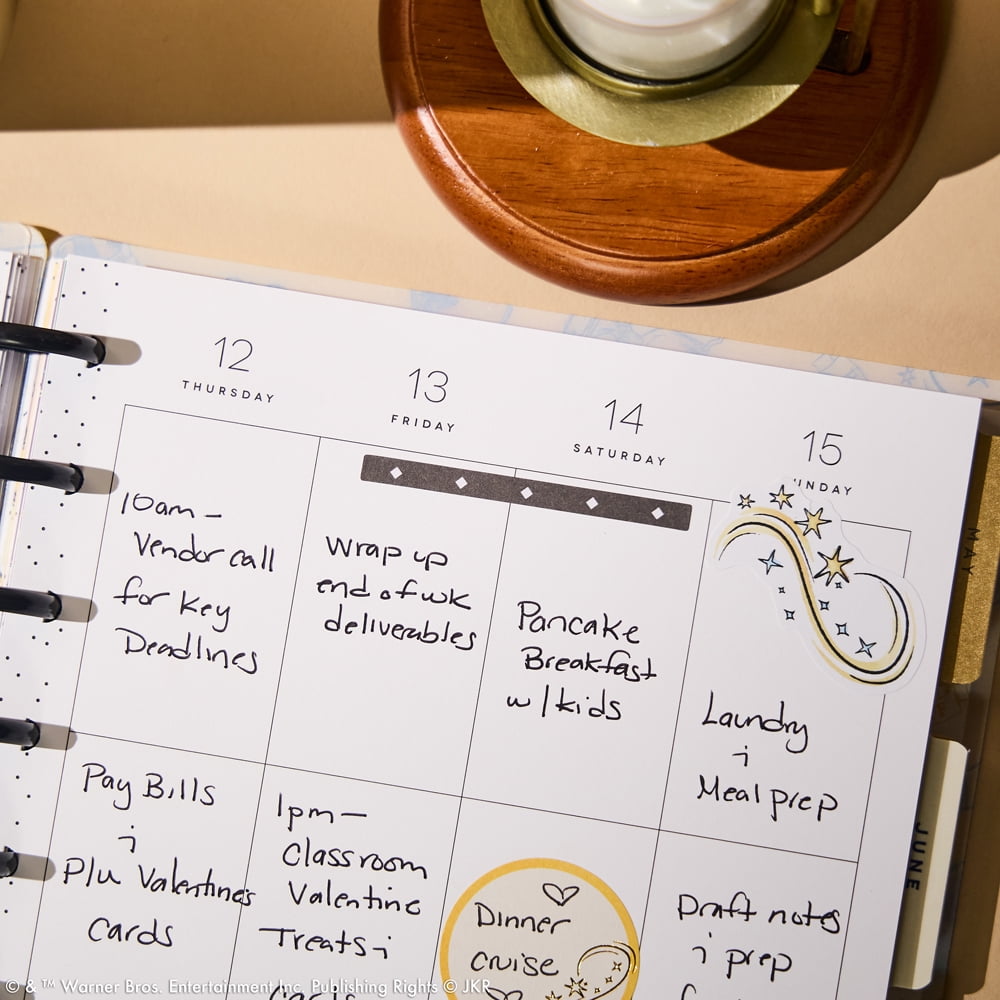 12
THURSDAY
13
FRIDAY
14
SATURDAY
15
UNDAY
10am -
Vendor call
for key
Deadlines
Wrap up
end of wk
deliverables
Pancake
Breakfast
w/kids
Laundry
i
Meal prep
Pay Bills
i
P/u Valentines
Cards
1pm -
Classroom
Valentine
Treats i
Dinner
cruise
Draft notes
i prep
MAY
JUNE
© & ™ Warner Bros. Entertainment Inc. Publishing Rights © JKR